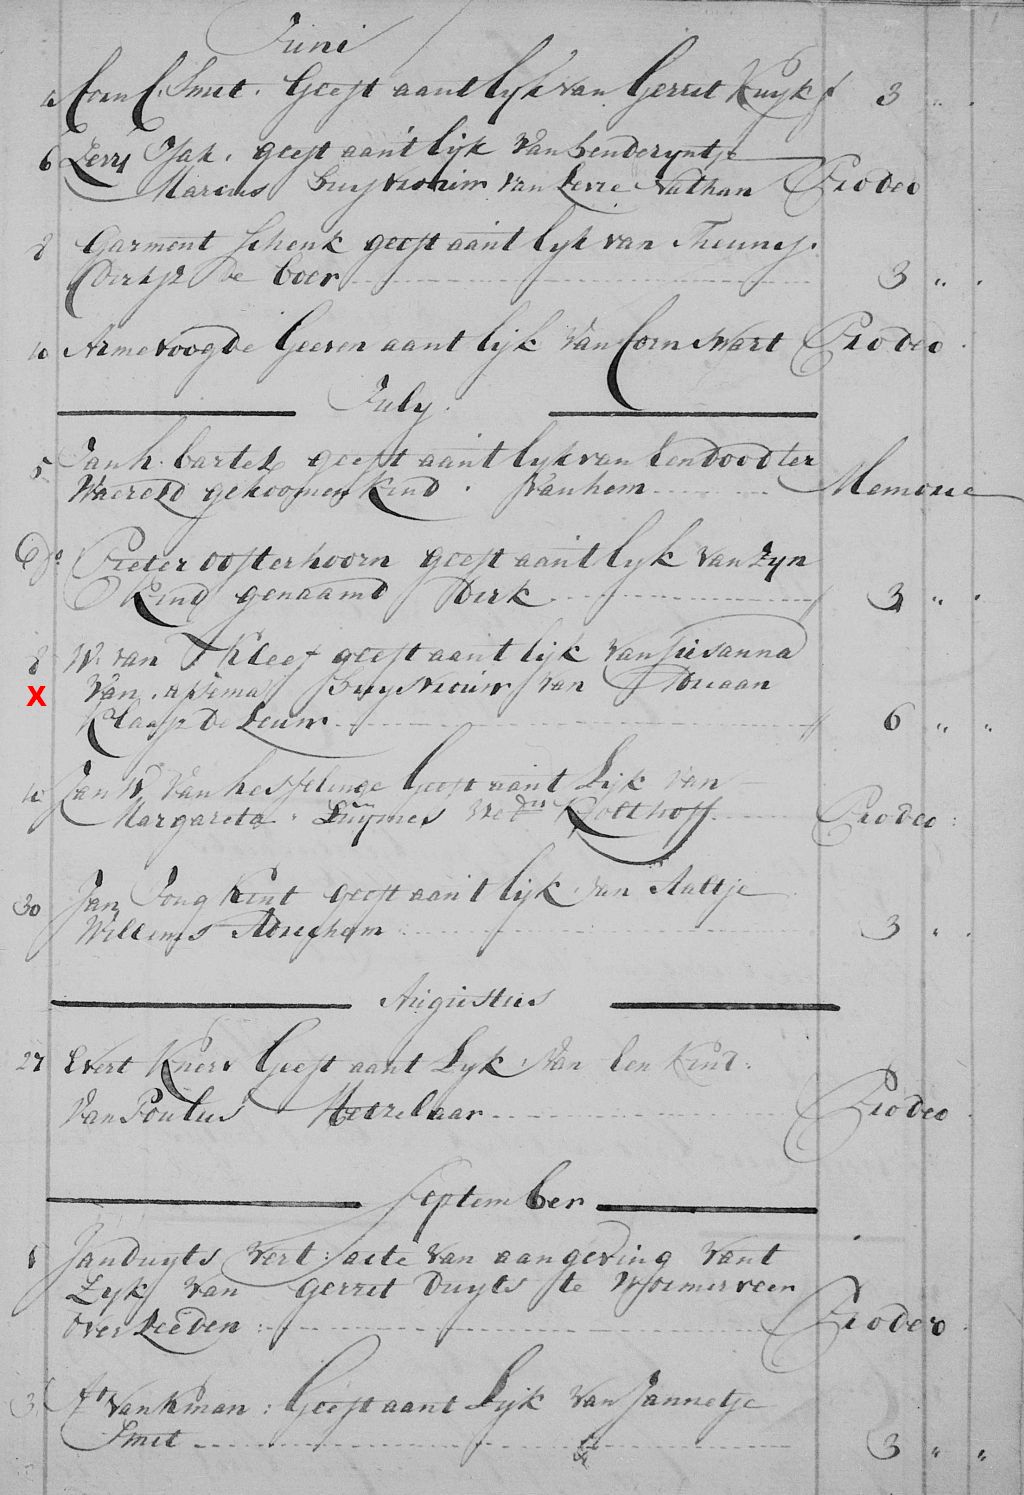 Juni
Corn C. Smit. Geeft aant lyk van Gerret Kuyk f 3 " "
6 Levy Isak. geeft aant lyk van henderyntje
Marcus huysvrouw van Levie Nathan Prodeo
8 Garment Schenk geeft aant lyk van Theunis
Dirksz De boer 3 " "
10 Armevoogde Geeven aant lyk van Corn Swart Prodeo
July
5 Jan h. bartels geeft aant lyk van Een dood ter
Waereld gekoomen kind. van hem Memorie
Do Pieter oosterhoorn geeft aant lyk van zyn
kind genaamd Dirk 3 " "
8 W. van Kleef geeft aant lyk van Susanna
X van huysvrouw van Adriaan
Klaasz De Leuw 6 " "
Jan W. van hesselinge Geeft aant Lyk van
Margareta Luymes Wede Kolthoff Prodeo
30 Jan Jong Kint geeft aant lyk van Aaltje
Willems Abraham 3 " "
Augustus
27 Evert Geeft aant Lyk van Een Kind
van Poulus Metzelaar Prodeo
September
Jan Duyts Vert: acte van aangeving vant
Lyk van Gerret Duyts te Wormerveer
over Leeden: Prodeo
3 van kman: Geeft aant Lyk van Jannetje
Smit 3 " "